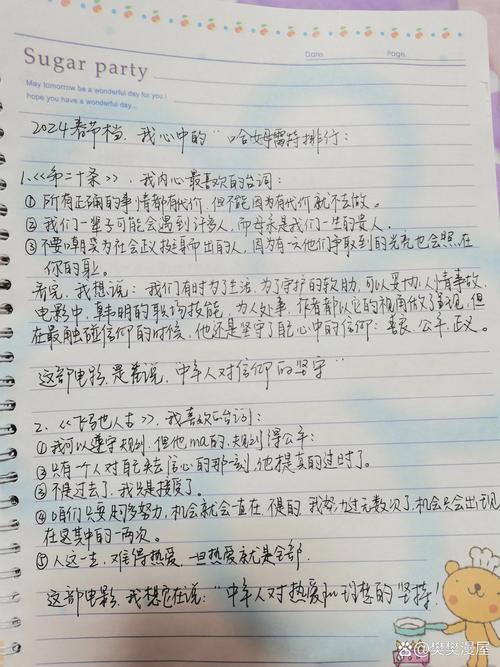 Date: Page:
Sugar party
May tomorrow be a wonderful day for you I
hope you have a wonderful day...
2024春节档，我心中的“哈姆雷特排行：
1.《第二十条》，我内心最喜欢的台词：
①所有正确的事情都有代价，但不能因为有代价就不去做。
②我们一辈子可能会遇到许多人，而母亲是我们一生的贵人。
③不要嘲笑为社会正义挺身而出的人，因为有一天他们争取到的光亮也会照在
你的身上。
看完，我想说：我们有时为了生活，为了守护的软肋，可以妥协，人情事故，
电影中，韩明的职场技能，为人处事，作者都从它的视角做了客观，但
在最触碰信仰的时候，他还是坚守了自己心中的信仰：善良、公平、正义。
这部电影是在说，中年人对信仰的坚守”
2.《飞驰人生》，我喜欢的台词：
①我可以遵守规则，但他ma的，规则得公平：
②只有一个人对自己失去信心的那一刻，他才是真的过时了。
③不是过去了，我只是接受了。
④咱们只要足够多努力，机会就会一直在，不是的，我努力过无数次了，机会只会出现
在这其中的一两次。
⑤人这一生，难得热爱，一旦热爱就是全部。
这部电影，我想它在说：“中年人对热爱和理想的坚持！
樊樊漫屋